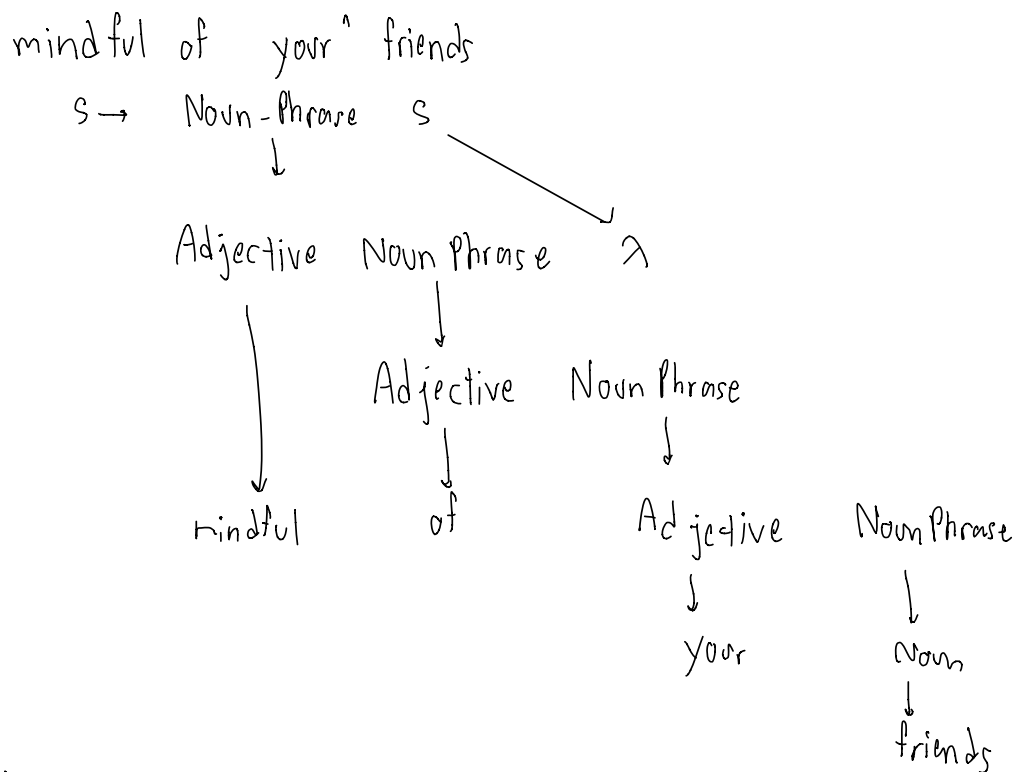 mindful of your^ friends
S → Noun-Phrase S
Adjective Noun Phrase λ
Adjective Noun Phrase
mindful of Adjective Noun Phrase
your Noun
friends